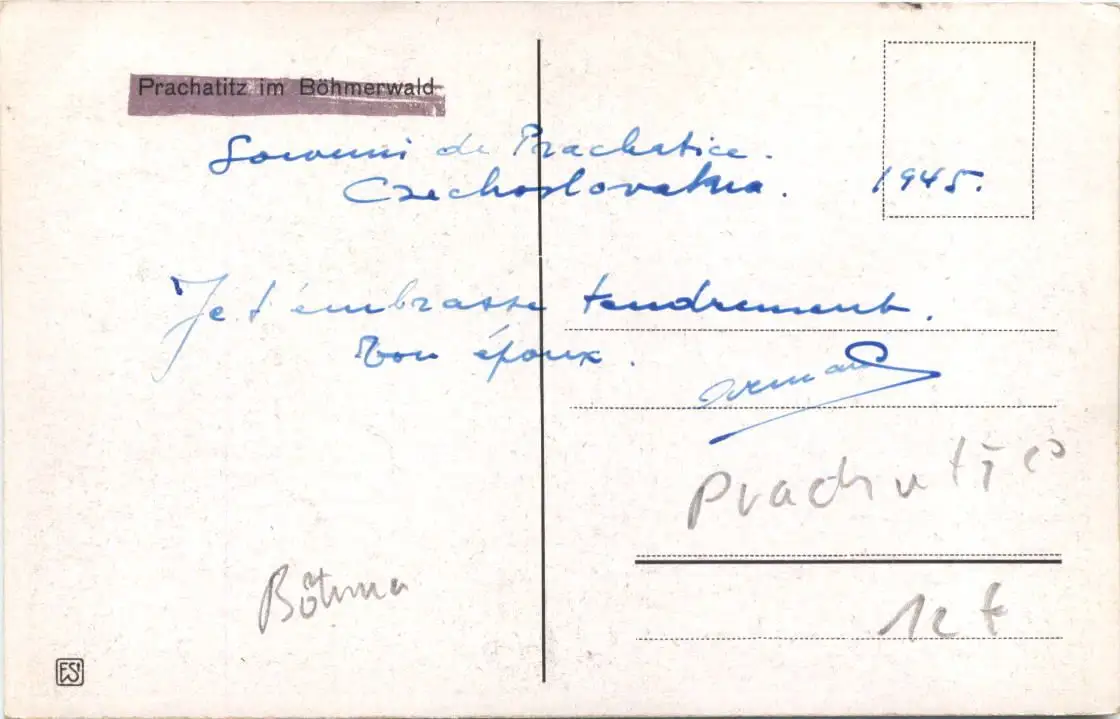 Prachatitz im Böhmerwald
Souvenir de Prachatice.
Czechoslovakia. 1945.
Je t'embrasse tendrement.
Ton époux.
Armand
Prachatice
Böhmen